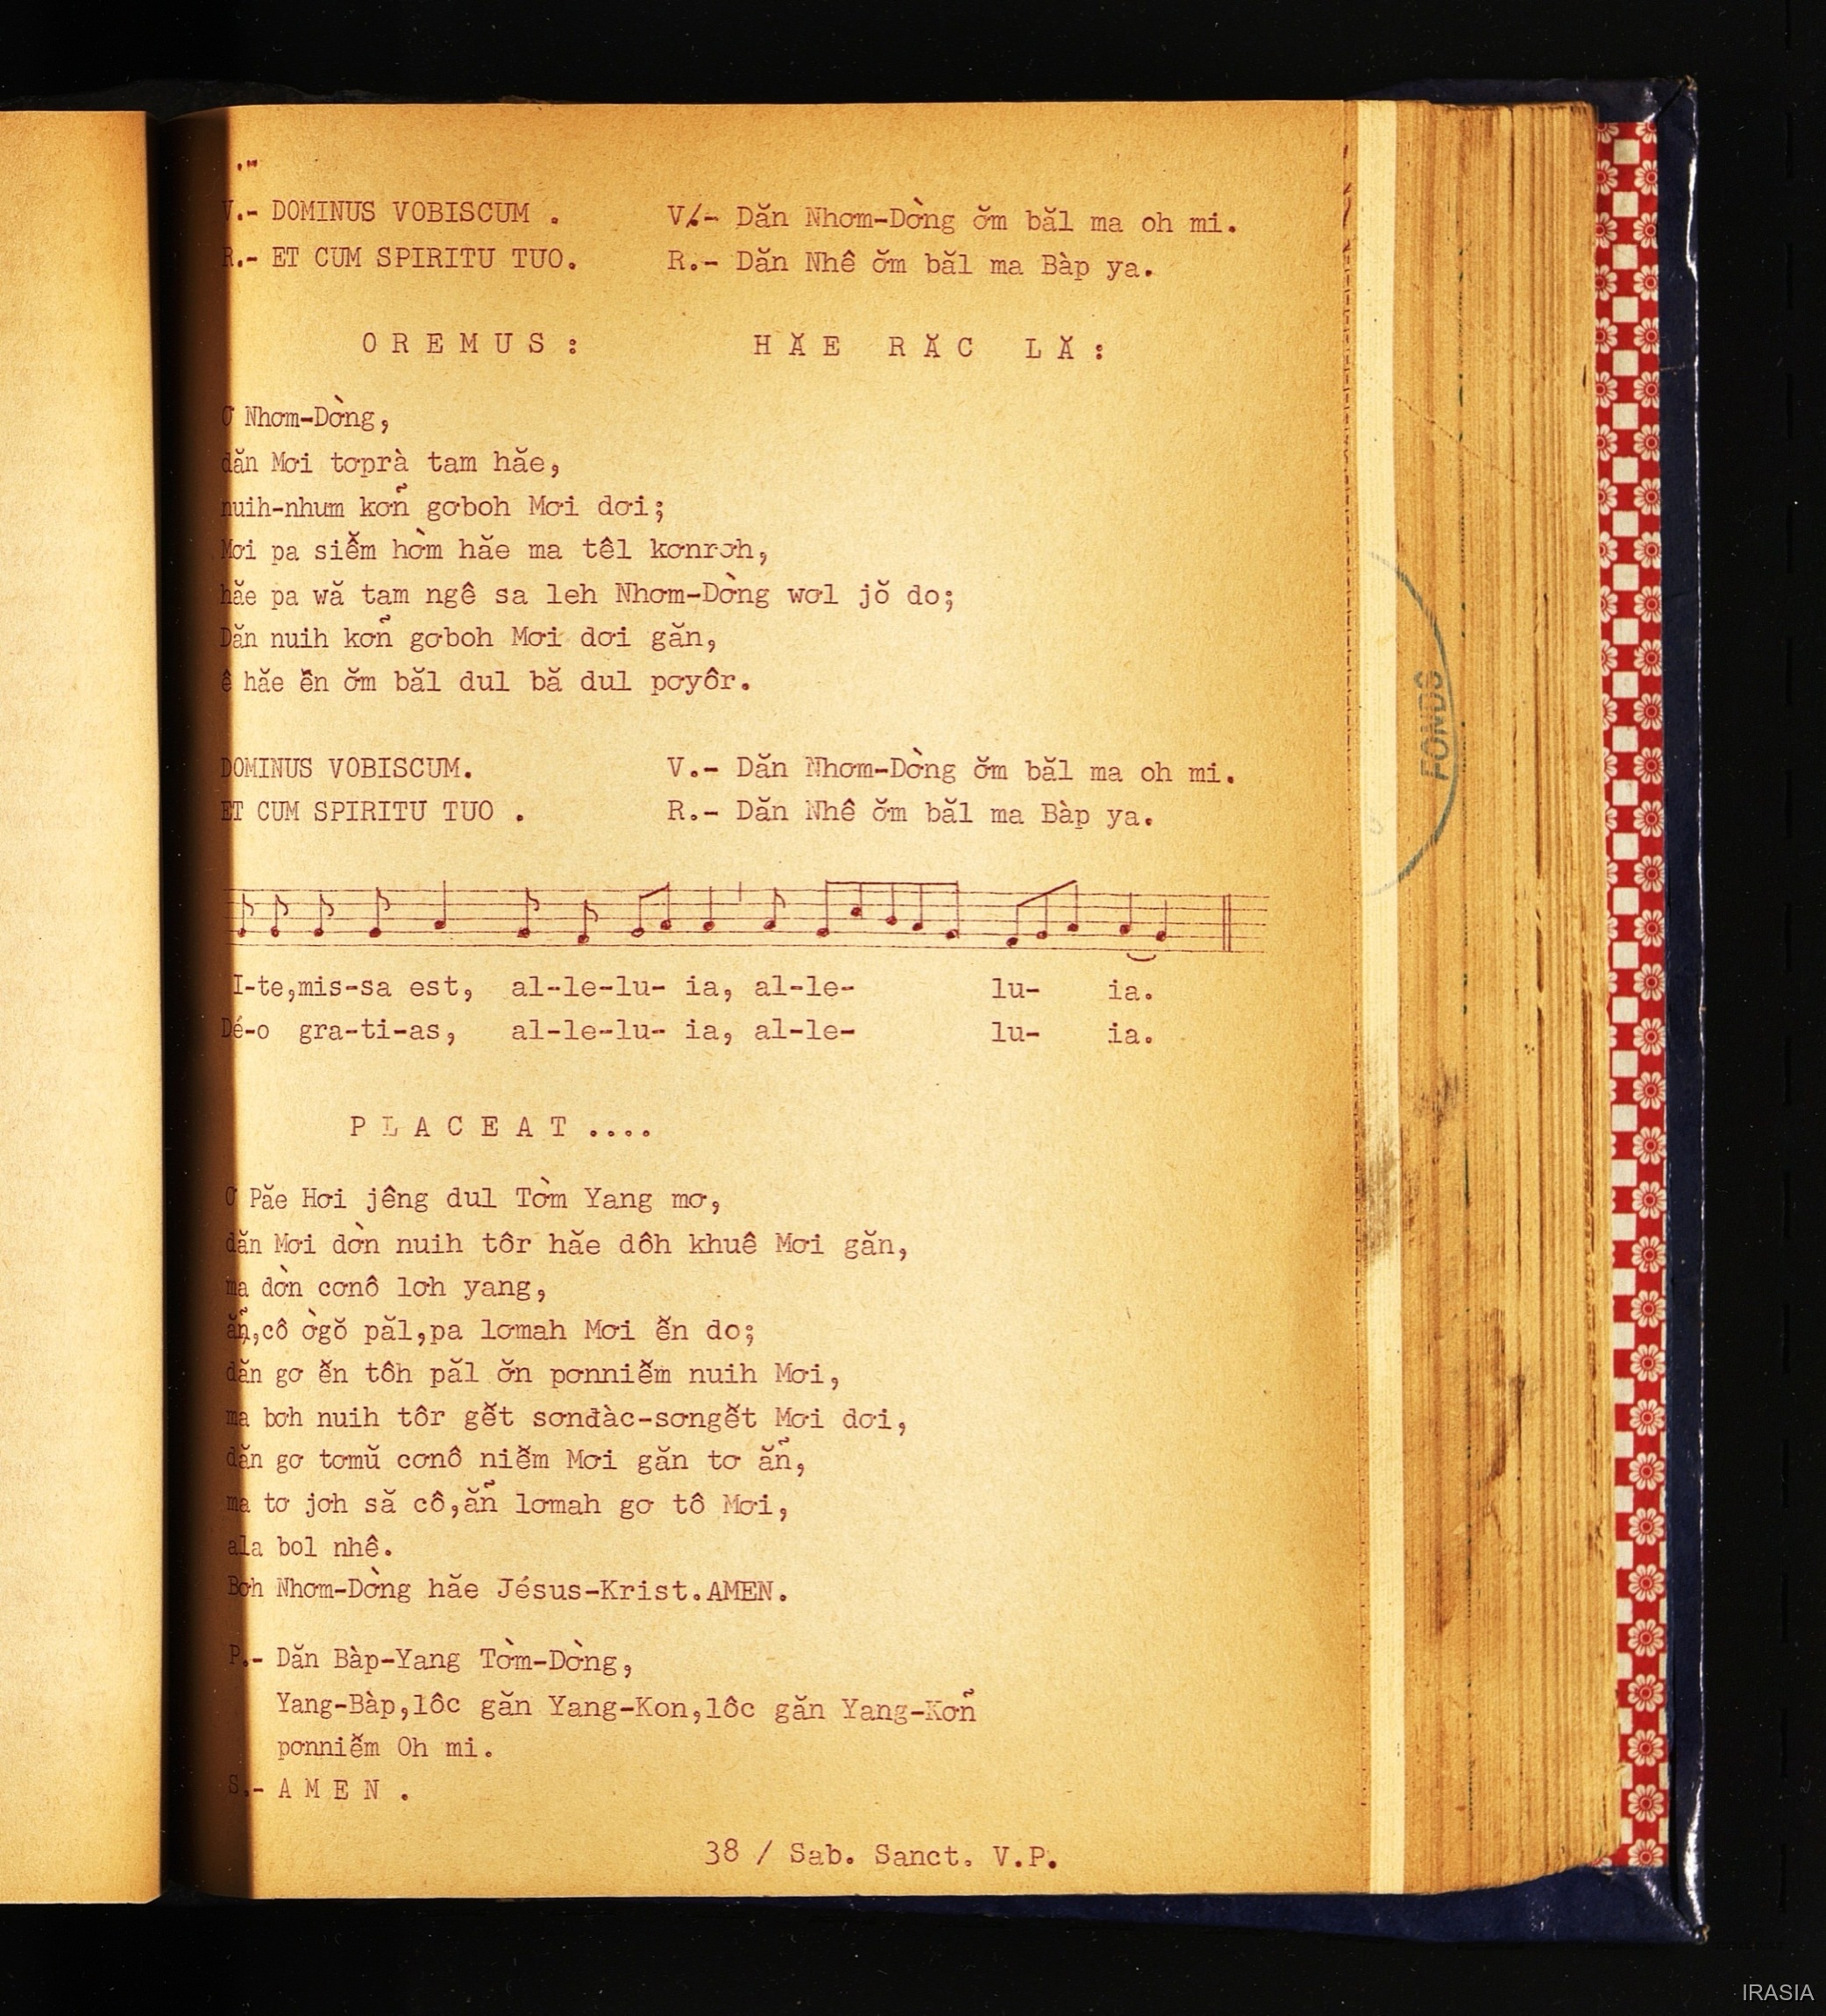 V.- DOMINUS VOBISCUM . V.- Dăn Nhơm-Dờng ơ̆m băl ma oh mi.
R.- ET CUM SPIRITU TUO. R.- Dăn Nhê ơ̆m băl ma Bàp ya.
O R E M U S : H Ă E R Ă C L Ă :
Ơ Nhơm-Dờng,
dăn Mơi tơprà tam hăe,
nuih-nhum kơñ gơboh Mơi dơi;
Mơi pa siê̆m hờm hăe ma têl kơnrơh,
hăe pa wă tam ngê sa leh Nhơm-Dờng wơl jŏ do;
Dăn nuih kơñ gơboh Mơi dơi găn,
ê hăe ê̆n ơ̆m băl dul bă dul pơyôr.
DOMINUS VOBISCUM. V.- Dăn Nhơm-Dờng ơ̆m băl ma oh mi.
ET CUM SPIRITU TUO . R.- Dăn Nhê ơ̆m băl ma Bàp ya.
I-te,mis-sa est, al--le-lu- ia, al-le- lu- ia.
Dé-o gra-ti-as, al-le-lu- ia, al-le- lu- ia.
P L A C E A T ....
Ơ Păe Hơi jêng dul Tờm Yang mơ,
dăn Mơi dờn nuih tôr hăe dôh khuê Mơi găn,
ma dờn cơnô lơh yang,
ăñ,cô ờgŏ păl,pa lơmah Mơi ê̆n do;
dăn gơ ê̆n tôh păl ơ̆n pơnniê̆m nuih Mơi,
ma bơh nuih tôr gê̆t sơnđàc-sơngê̆t Mơi dơi,
dăn gơ tơmŭ cơnô niê̆m Mơi găn tơ ăñ,
ma tơ jơh să cô,ăñ lơmah gơ tô Mơi,
ala bol nhê.
Bơh Nhơm-Dờng hăe Jésus-Krist.AMEN.
P.- Dăn Bàp-Yang Tờm-Dờng,
Yang-Bàp,lôc găn Yang-Kon,lôc găn Yang-Kơñ
pơnniê̆m Oh mi.
S.- A M E N .
38 / Sab. Sanct. V.P.
FONDS
IRASIA